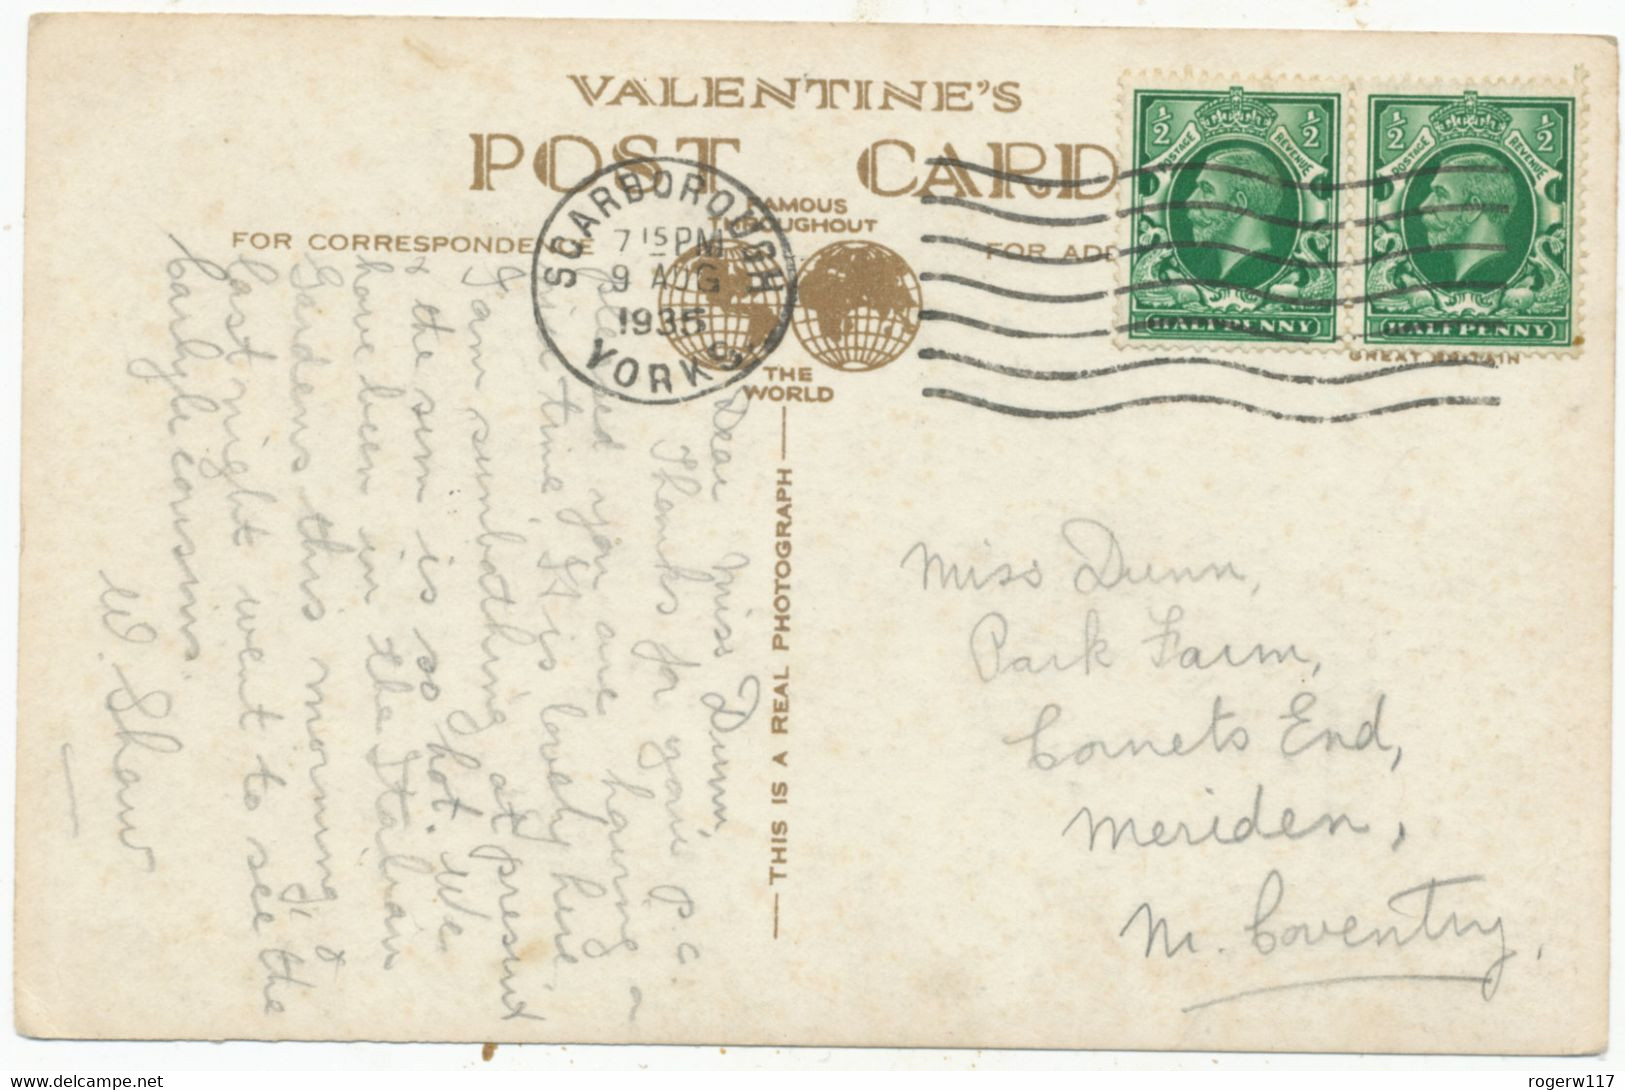 VALENTINE'S
POST CARD
FAMOUS
THROUGHOUT
THE
WORLD
FOR CORRESPONDENCE
FOR ADD
SCARBOROUGH
7 15 PM
9 AUG
1935
YORKS
POSTAGE REVENUE
1/2 1/2
HALFPENNY
POSTAGE REVENUE
1/2 1/2
HALFPENNY
GREAT BRITAIN
THIS IS A REAL PHOTOGRAPH
Dear Miss Dunn,
Thanks for your p.c.
pleased you are having a
nice time. It is lovely here,
I am sunbathing at present
& the sun is so hot. We
have been in the Italian
Gardens this morning, &
last night went to see the
Carlyle cousins.
W. Shaw
Miss Dunn,
Park Farm,
Cornets End,
Meriden,
Nr. Coventry,
rogerw117